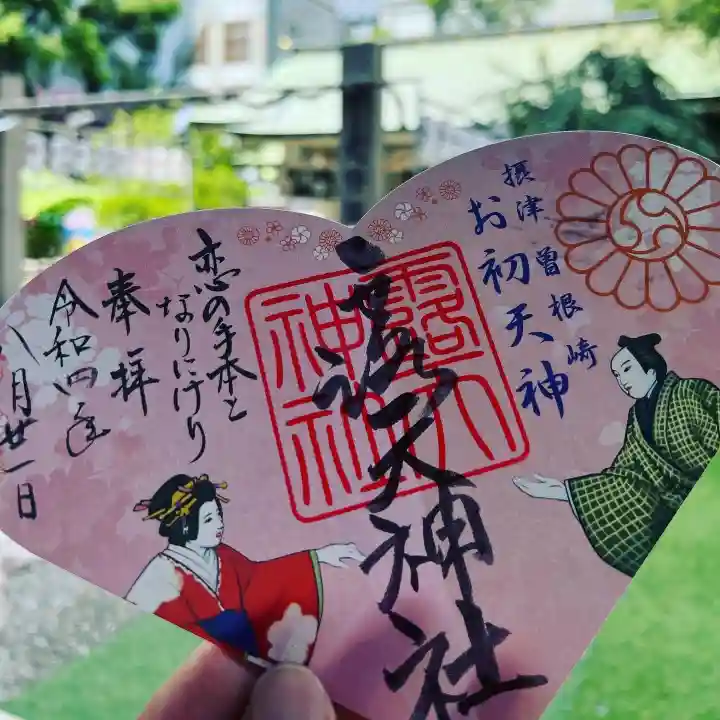 摂津 曽根崎
お初天神
露天神社
恋の手本と
なりにけり
奉拝
令和四年
八月廿一日